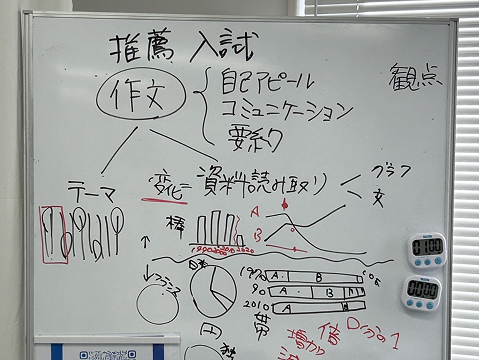 推薦 入試
観点
作文
自己アピール
コミュニケーション
要約
テーマ
変化=
資料読み取り
グラフ
文
棒
A
B
1990 2000 2010 2020
日本
フランス
1990 A B
90 A B
2010 A
円
帯
倍
増加
□分の1
01:00